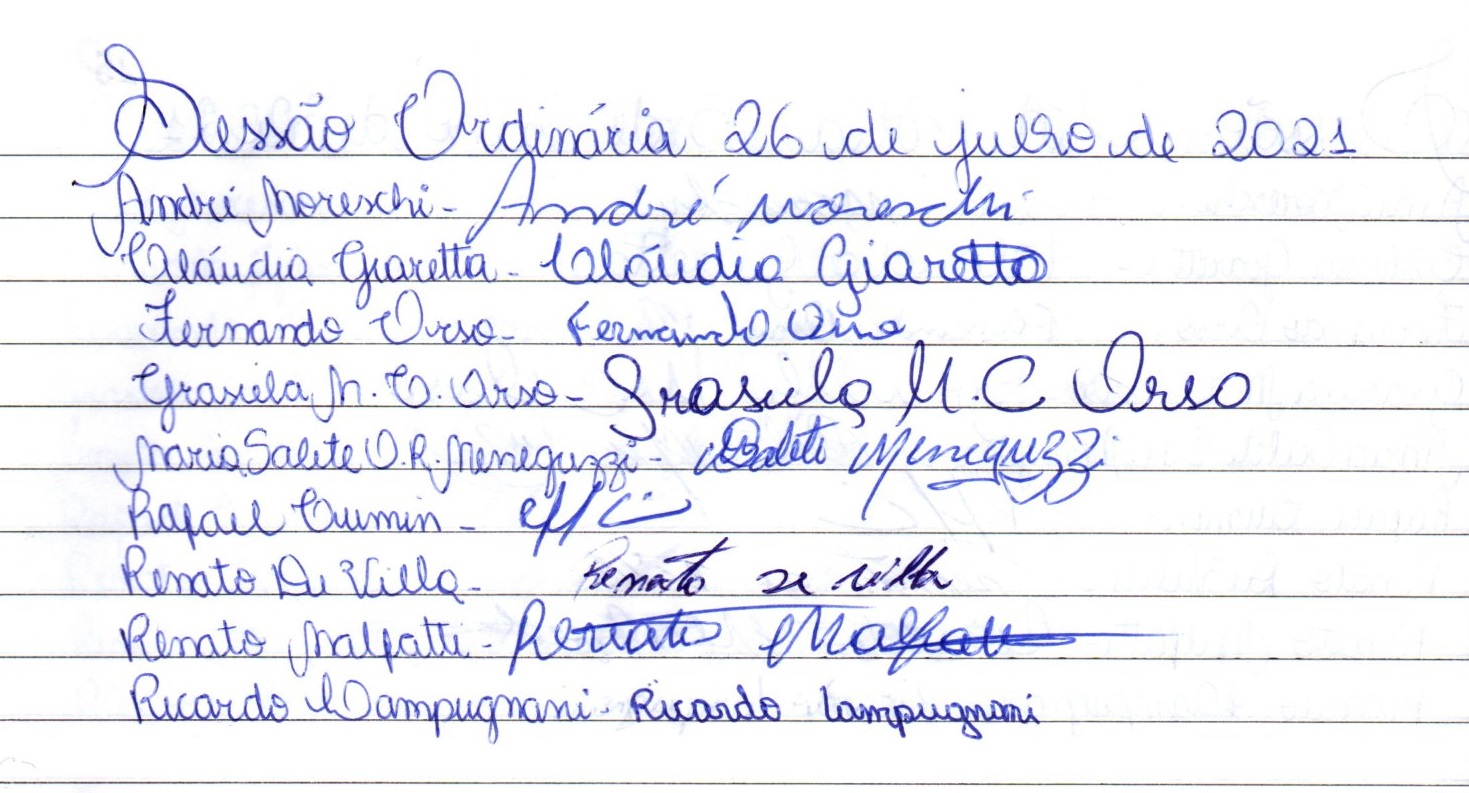 Sessão Ordinária 26 de julho de 2021
André Moreschi - André Moreschi
Cláudia Giaretta - Cláudia Giaretta
Fernando Orso - Fernando Orso
Grasiela M. C. Orso - Grasiela M. C Orso
Maria Salete O. R. Meneguzzi - Salete Meneguzzi
Rafael Cumin -
Renato De Villa - Renato de villa
Renato Malfatti - Renato Malfatti
Ricardo Lampugnani - Ricardo lampugnani